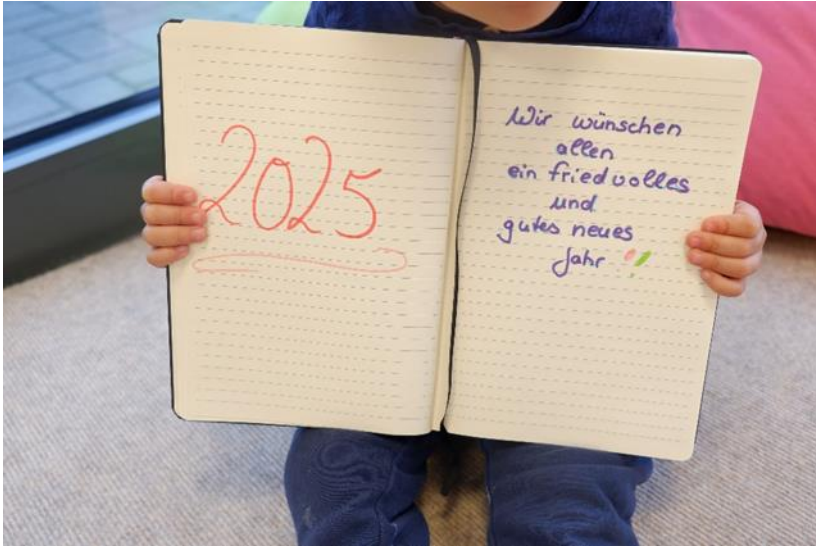 2025
Wir wünschen
allen
ein friedvolles
und
gutes neues
Jahr